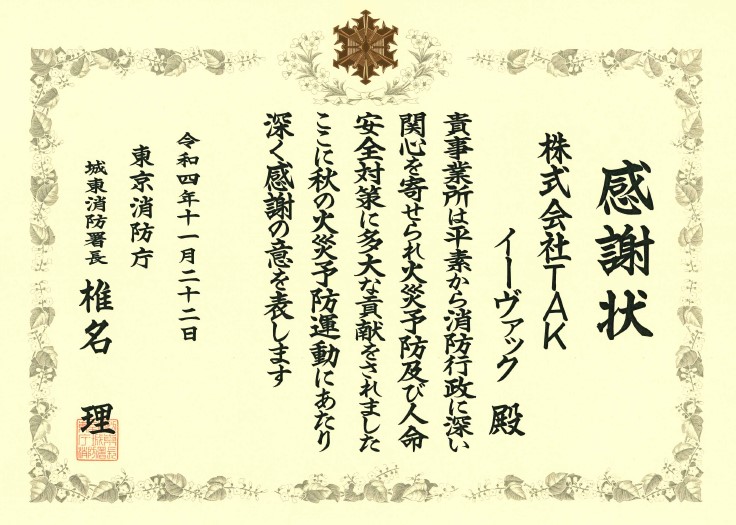 感謝状
株式会社TAK
イーヴァック 殿
貴事業所は平素から消防行政に深い
関心を寄せられ火災予防及び人命
安全対策に多大な貢献をされました
ここに秋の火災予防運動にあたり
深く感謝の意を表します
令和四年十一月二十二日
東京消防庁
城東消防署長 椎名 理